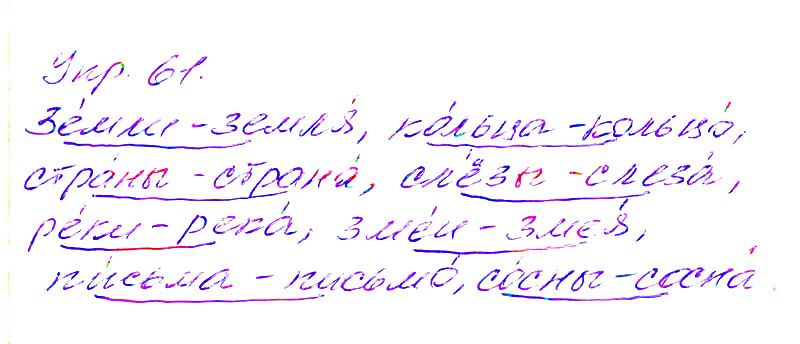 Упр. 61.
Зе́мли - земля́, ко́льца - кольцо́,
стра́ны - страна́, слёзы - слеза́,
ре́ки - река́, зме́и - змея́,
пи́сьма - письмо́, со́сны - сосна́.